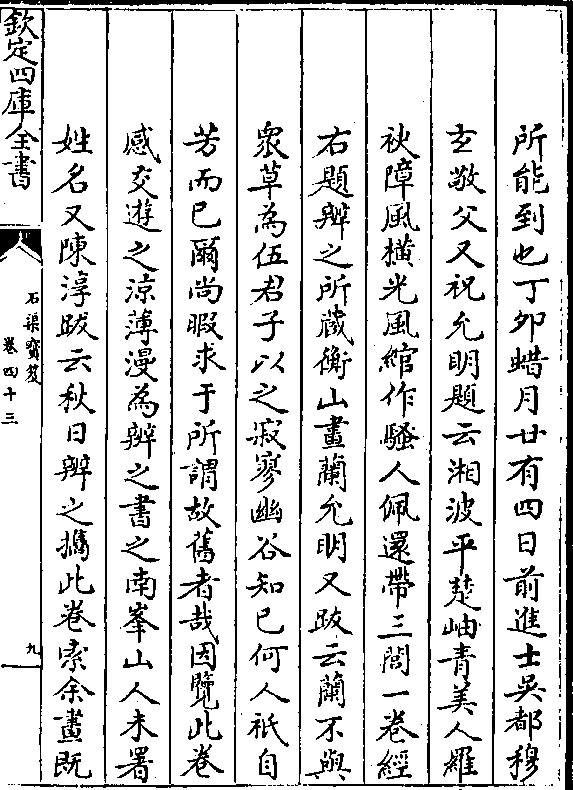 所能到也丁卯蜡月廿有四日前進士吳都穆
玄敬父又祝允明題云湘波平楚岫青美人羅
袂障風橫光風綰作騷人佩還帶三閭一卷經
右題辨之所藏衡山畫蘭允明又跋云蘭不與
衆草為伍君子以之寂寥幽谷知已何人祇自
芳而已爾尚暇求于所謂故舊者哉因覽此卷
感交遊之涼薄漫為辨之書之南峯山人未署
姓名又陳淳跋云秋日辨之攜此卷索余畫既
欽定四庫全書
石渠寶笈
卷四十三
九